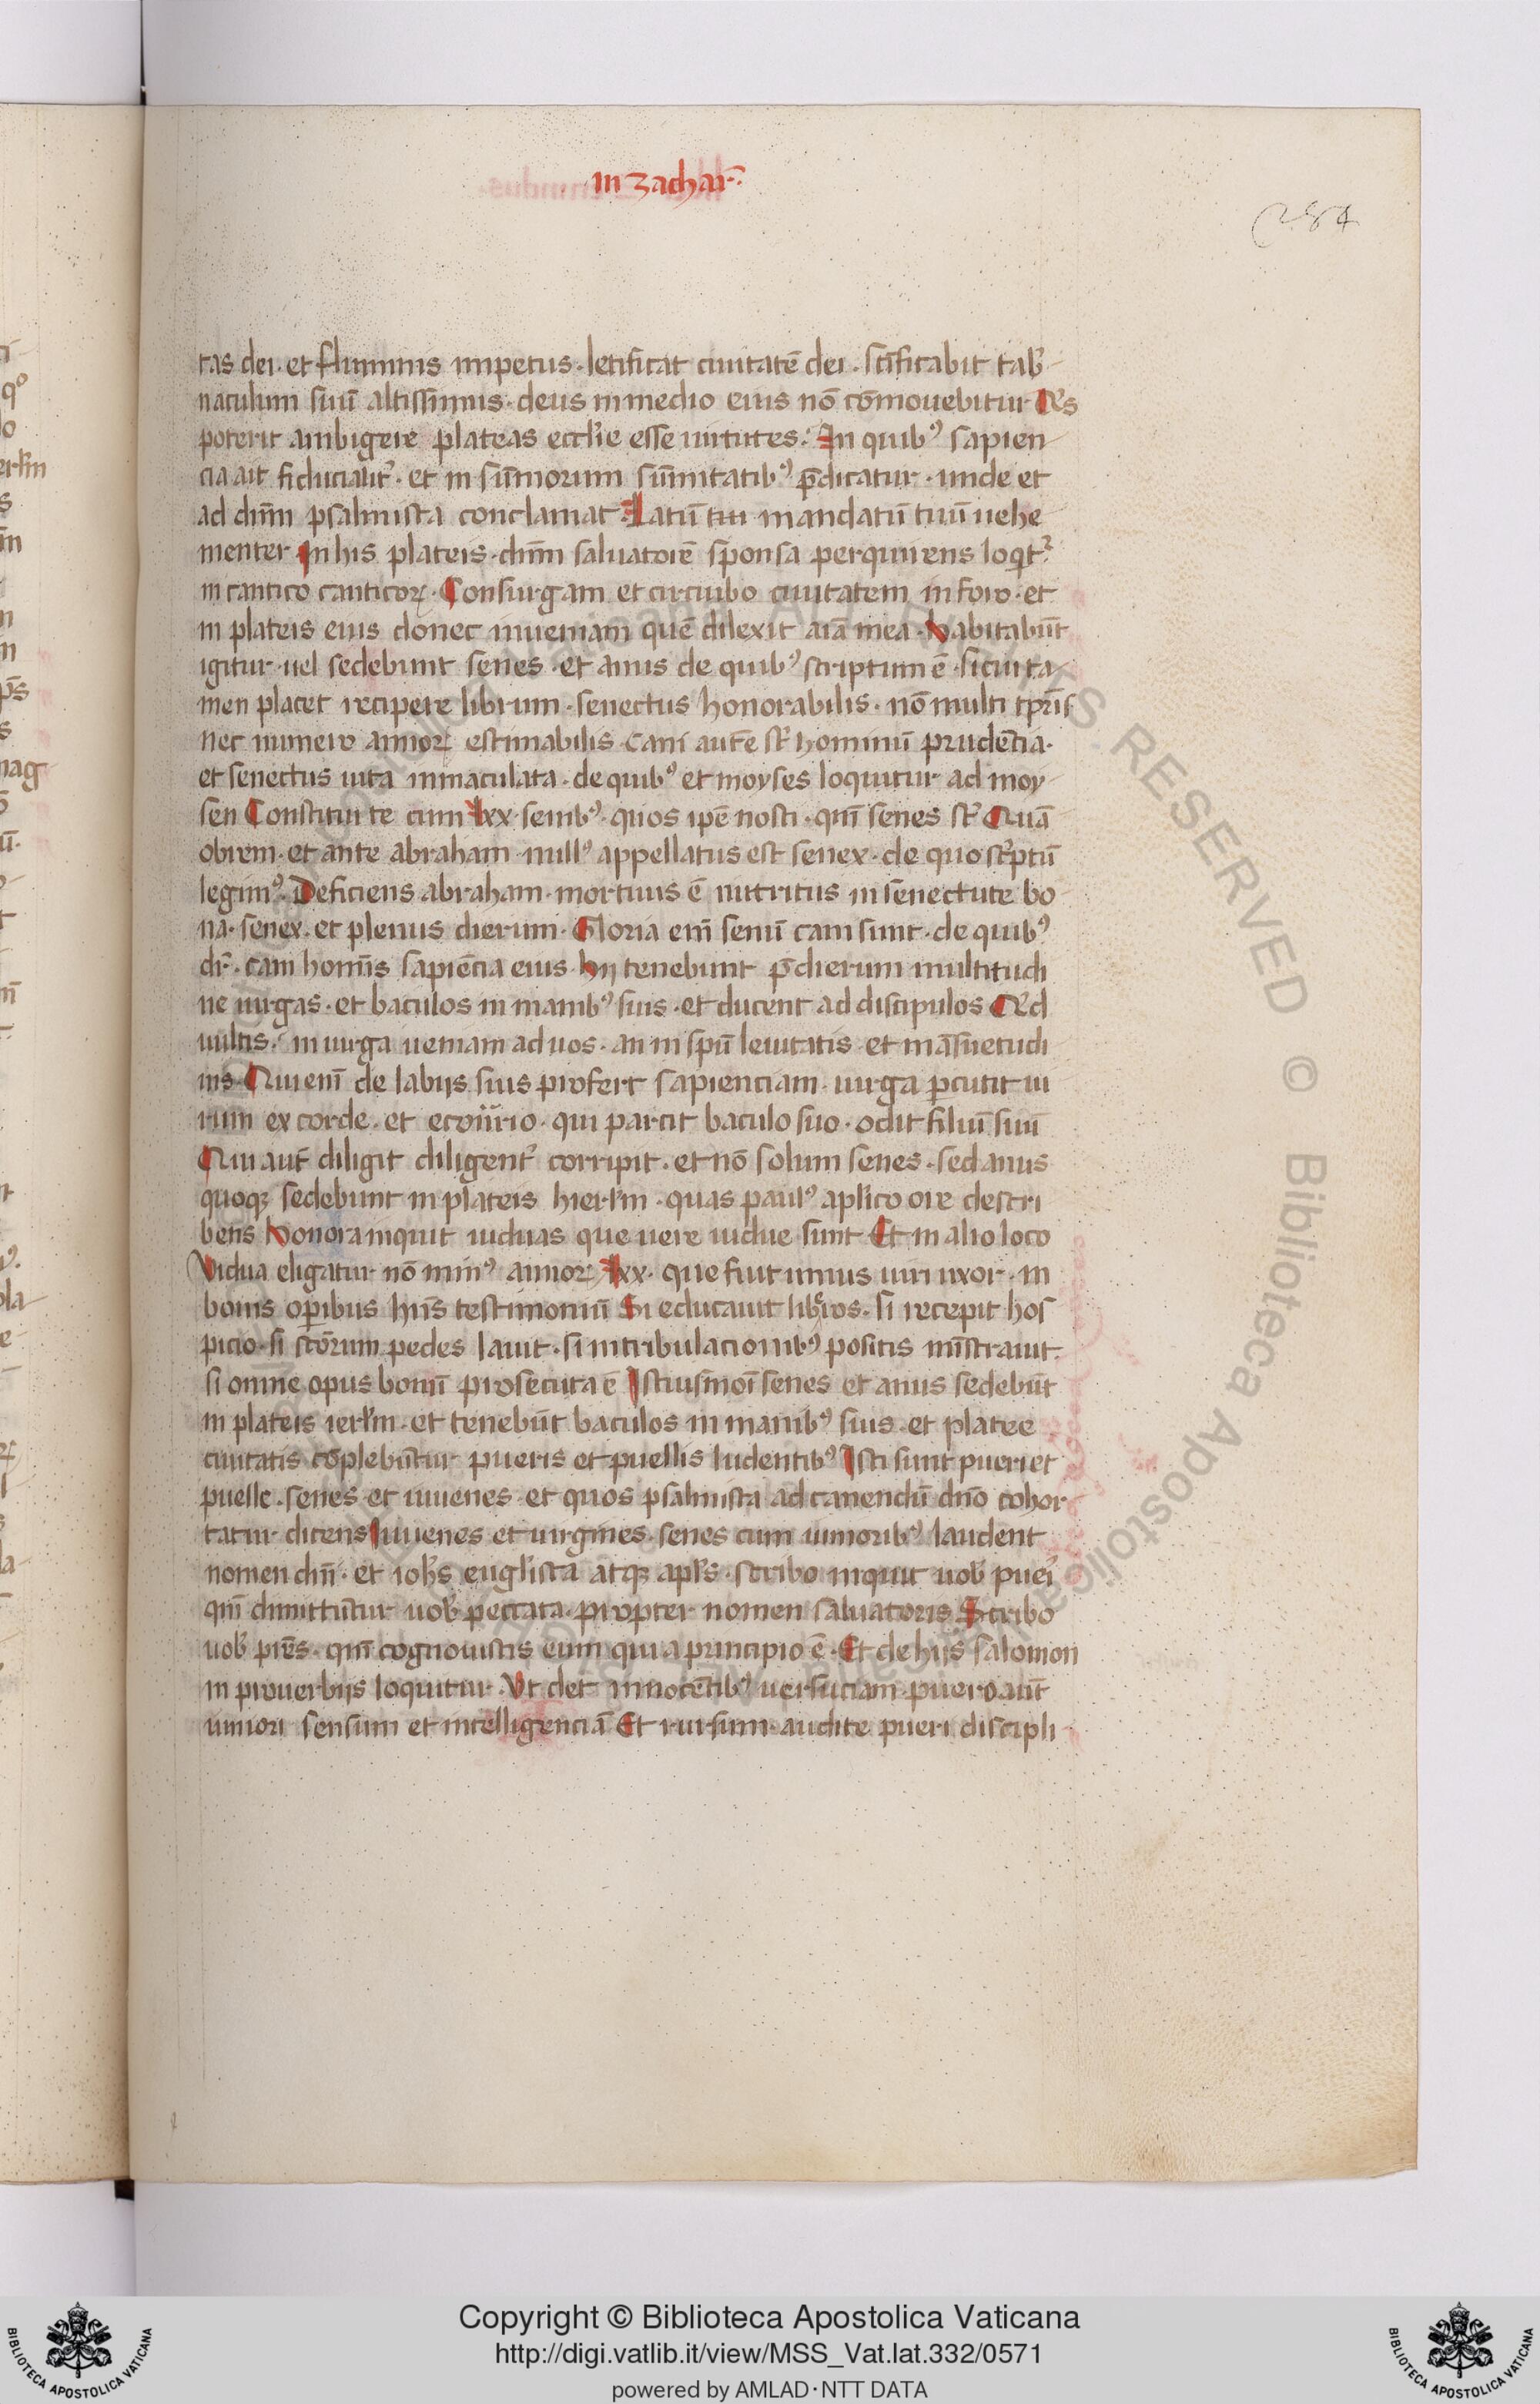 in zachar̄.
284
tas dei. et fluminis impetus. letificat ciuitatē dei. sc̄ificabit tab̄
naculum suū altissimus. deus in medio eius nō cōmouebitur Q̄s
poterit ambigere plateas eccl̄ie esse uirtutes. In quib⁹ sapien
cia ait fiducialit̄. et in sūmorum sūmitatib⁹ p̄dicatur. unde et
ad dn̄m psalmista conclamat. Latū tui mandatū tuū uehe
menter In his plateis. dn̄m saluatorē sponsa perquirens loqt̄
in cantico canticoꝝ. Consurgam et circuibo ciuitatem in foro. et
in plateis eius donec inueniam quē dilexit aīa mea. habitabūt
igitur uel sedebunt senes. et anus de quib⁹ scriptum ē. sicui ta
men placet recipere librum. senectus honorabilis. nō multi tp̄ris
nec numero annoꝝ estimabilis. Cani autē st̄ hominū prudētia.
et senectus uita inmaculata. de quib⁹ et moyses loquitur ad moy
sen Constitui te cum lxx. senib⁹. quos ipē nosti. qm̄ senes st̄ Quā
obrem. et ante abraham null⁹ appellatus est senex. de quo sc̄ptū
legim⁹. Deficiens abraham. mortuus ē nutritus in senectute bo
na. senex. et plenus dierum. Gloria em̄ senū cani sunt. de quib⁹
dr̄. cani homīs sapiēcia eius. hij tenebunt p̄ dierum multitudi
ne uirgas. et baculos in manib⁹ suis. et ducent ad discipulos Q̄d
uultis. in uirga ueniam ad uos. an in spū leuitatis et māsuetudi
nis. Qui enī de labijs suis profert sapienciam. uirga p̄cutit ui
rum ex corde. et econt̄rio. qui parcit baculo suo. odit filiū suū
Qui aut̄ diligit diligent̄ corripit. et nō solum senes. sed anus
quoqꝫ sedebunt in plateis hierl̄m. quas paul⁹ apl̄ico ore descri
bens honora inquit uiduas que uere uidue sunt Et in alio loco
Vidua eligatur nō min⁹ annoꝝ lxx. que fuit unius uiri uxor. in
bonis oꝑibus hn̄s testimoniū Si educauit libros. si recepit hos
picio. si sc̄orum pedes lauit. si in tribulacionib⁹ positis mīstrauit.
si omne opus bonū prosecuta ē Istiusmōi senes et anus sedebūt
in plateis ierl̄m. et tenebūt baculos in manib⁹ suis. et platee
ciuitatis cōplebūtur pueris et puellis ludentib⁹ Isti sunt pueri et
puelle. senes et iuuenes. et quos psalmista ad canendū dn̄o cohor
tatur dicens Iuuenes et uirgines. senes cum iunorib⁹ laudent
nomen dn̄i. et ioh̄s eugl̄ista atqꝫ apl̄s. scribo inquit uob̄ puēi
qm̄ dimittūtur uob̄ peccata. propter nomen saluatoris Scribo
uob̄ pr̄es. qm̄ cognouistis eum qui a principio ē. Et de hijs salomon
in prouerbijs loquitur. Vt det innocētib⁹ uersuciam. puero aūt
iuniori sensum et intelligenciā Et rursum. audite pueri discipli
Copyright © Biblioteca Apostolica Vaticana
http://digi.vatlib.it/view/MSS_Vat.lat.332/0571
powered by AMLAD·NTT DATA
BIBLIOTECA APOSTOLICA VATICANA
BIBLIOTECA APOSTOLICA VATICANA